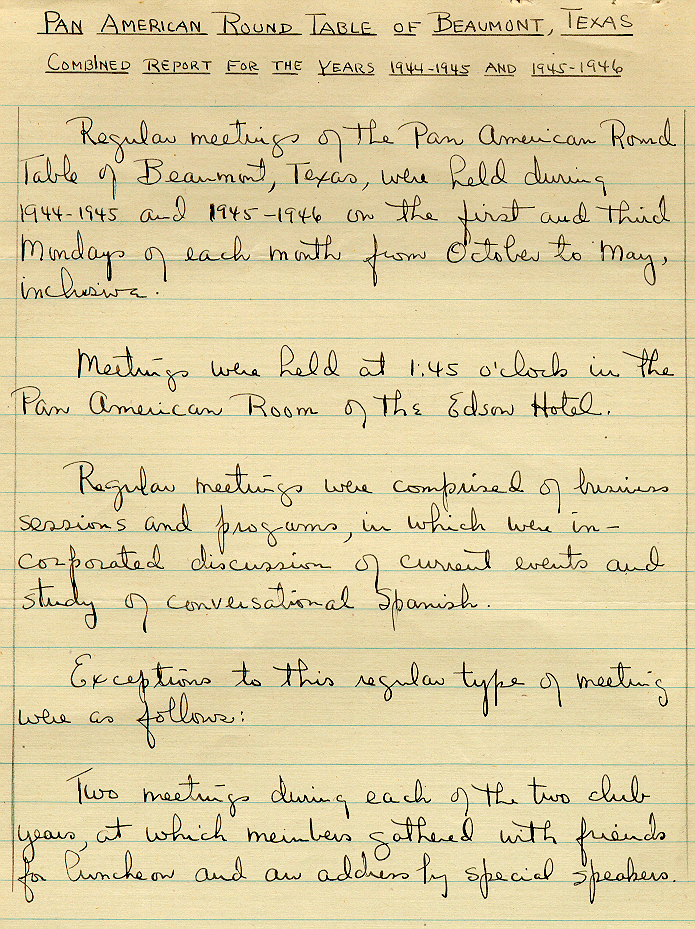 PAN AMERICAN ROUND TABLE OF BEAUMONT, TEXAS
COMBINED REPORT FOR THE YEARS 1944-1945 AND 1945-1946
Regular meetings of the Pan American Round
Table of Beaumont, Texas, were held during
1944-1945 and 1945-1946 on the first and third
Mondays of each month from October to May,
inclusive.
Meetings were held at 1:45 o'clock in the
Pan American Room of the Edson Hotel.
Regular meetings were comprised of business
sessions and programs, in which were in-
corporated discussion of current events and
study of conversational Spanish.
Exceptions to this regular type of meeting
were as follows:
Two meetings during each of the two club
years, at which members gathered with friends
for luncheon and an address by special speakers.